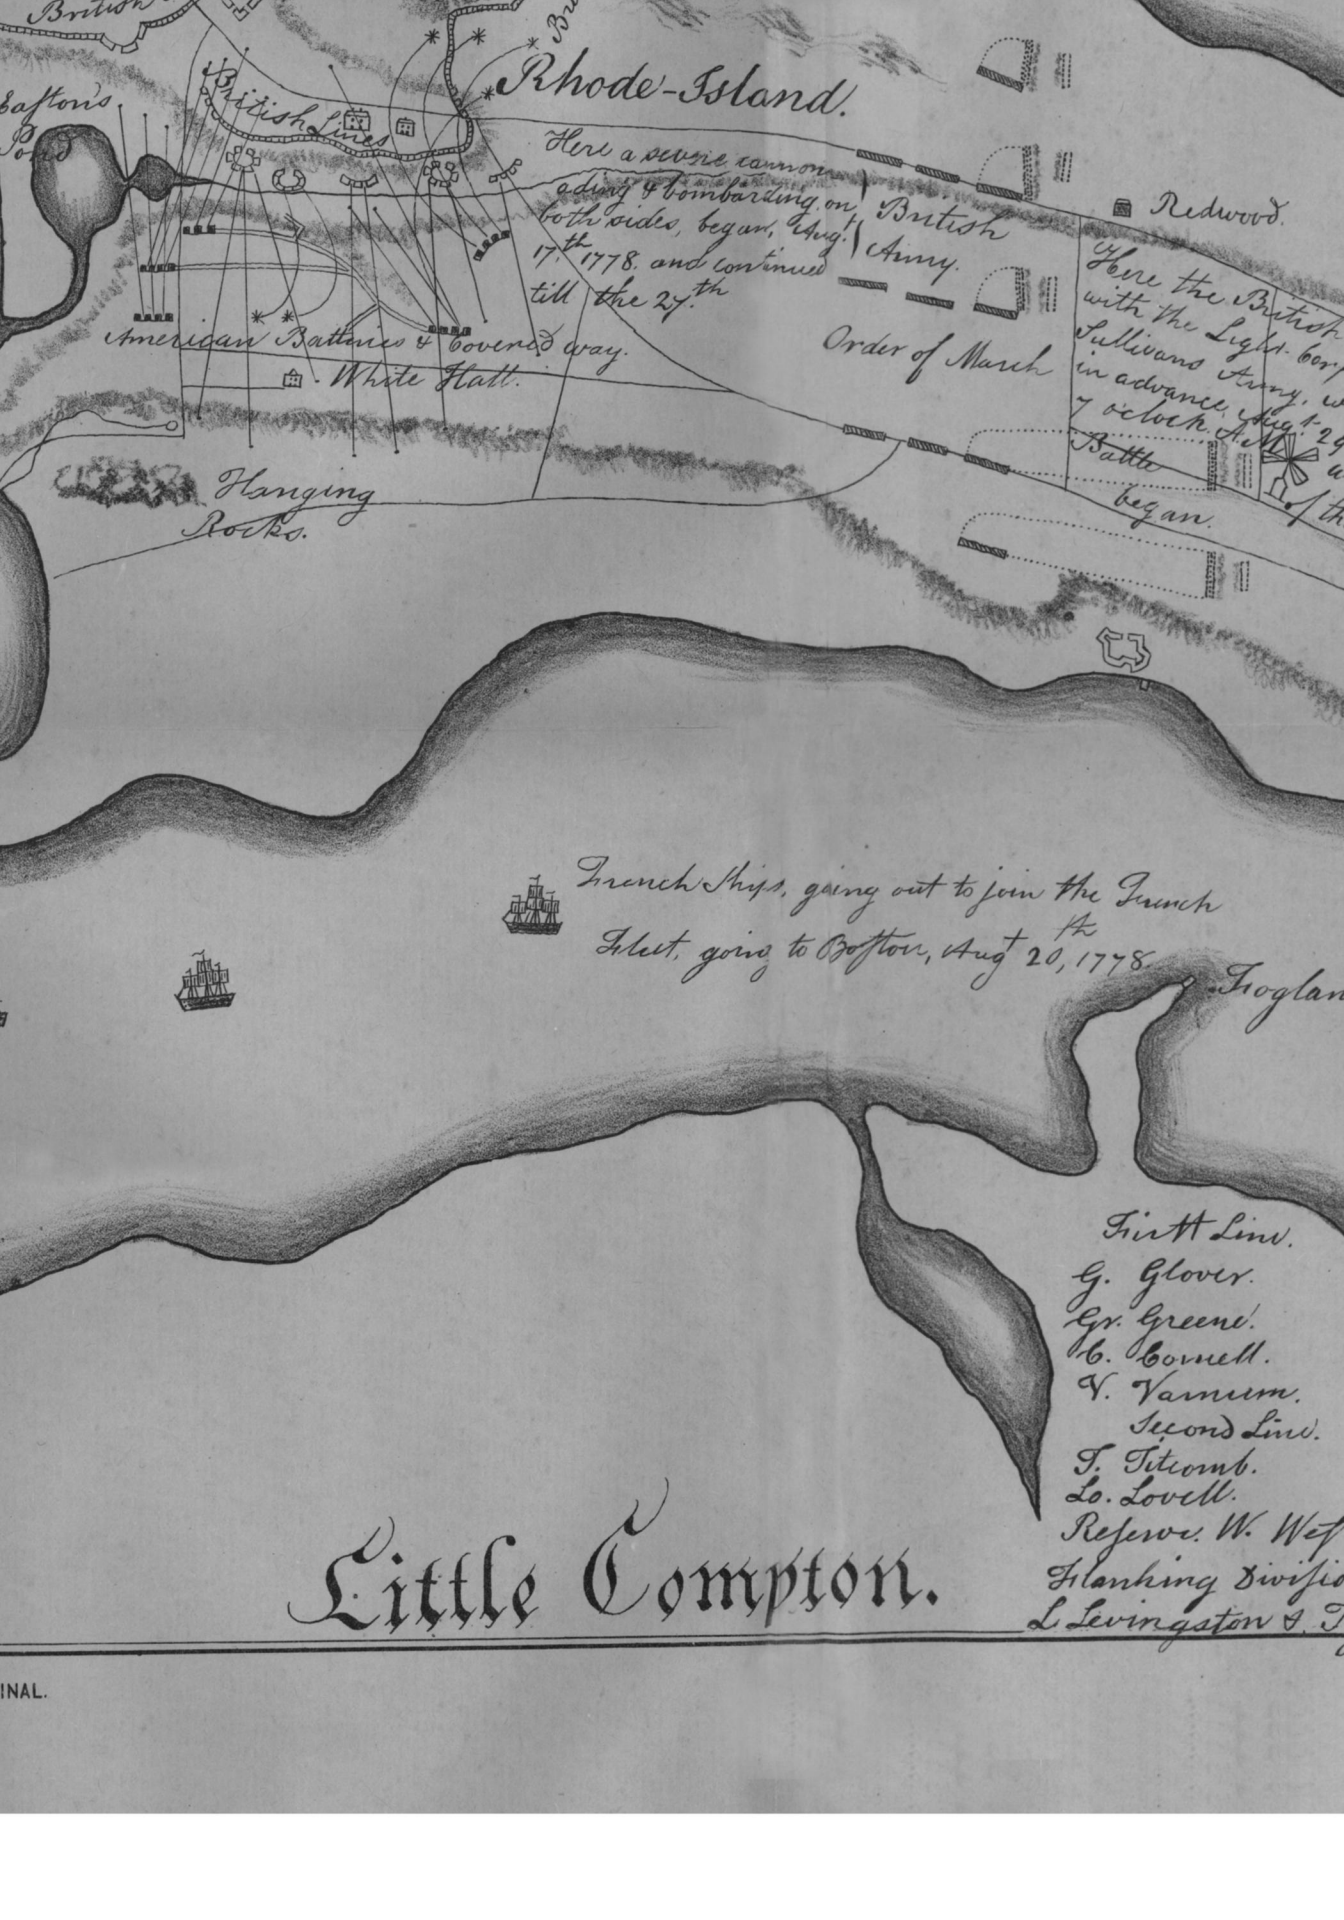 British
Rhode-Island.
Easton's
Pond
British Lines
Here a severe cannon
ading & bombarding, on
both sides, began, Aug.
17.th 1778. and continued
till the 27.th
British
Army.
Redwood.
Here the British
with the Light. Corp
Sullivans Army,
in advance, Aug.t 29
7 o'clock. A.M.
Battle
began.
of th
Order of March
American Batteries & Covered way.
White Hall.
Hanging
Rocks.
French Ships, going out to join the French
Fleet, going to Boſton, Augt 20,th 1778.
Foglan
Firſt Line.
G. Glover.
Gr. Greene.
C. Cornell.
V. Varnum.
Second Line.
T. Titcomb.
Lo. Lovell.
Reſerve. W. Weſ
Flanking Diviſio
L Levingston & T
Little Compton.
INAL.